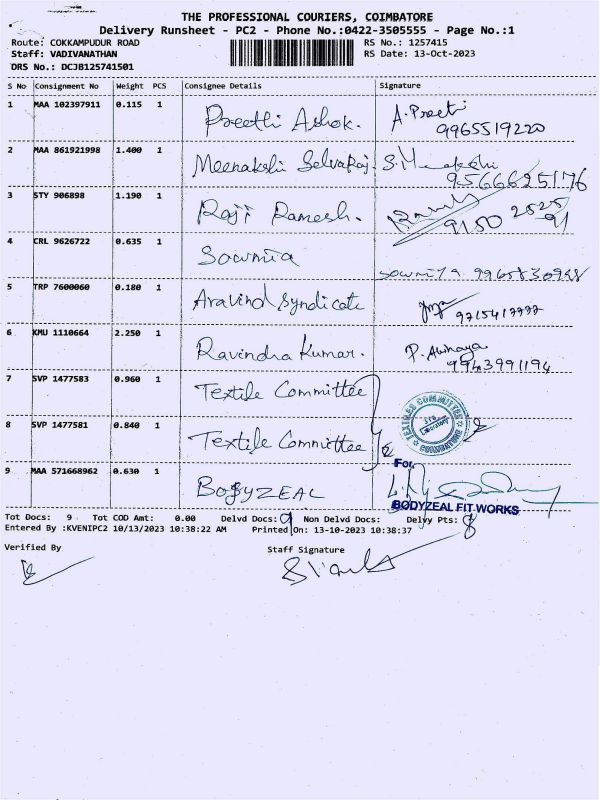 THE PROFESSIONAL COURIERS, COIMBATORE
Delivery Runsheet - PC2 - Phone No.:0422-3505555 - Page No.:1
Route: COKKAMPUDUR ROAD RS No.: 1257415
Staff: VADIVANATHAN RS Date: 13-Oct-2023
DRS No.: DCJB125741501
S No Consignment No Weight PCS Consignee Details Signature
1 MAA 102397911 0.115 1 Preethi Ashok. A. Preeti
9965519220
2 MAA 861921998 1.400 1 Meenakshi Selvaraj
9566625176
3 STY 906898 1.190 1 Raji Ramesh.
9150 2525 91
4 CRL 9626722 0.635 1 Sowmia
Sowmiya
5 TRP 7600060 0.180 1 Aravind Syndicate
6 KMU 1110664 2.250 1 Ravindra Kumar.
9943991194
7 SVP 1477583 0.960 1 Textile Committee
TEXTILES COMMITTEE
Laboratory
COIMBATORE
8 SVP 1477581 0.840 1 Textile Committee
For,
9 MAA 571668962 0.630 1 BODYZEAL
BODYZEAL FIT WORKS
Tot Docs: 9 Tot COD Amt: 0.00 Delvd Docs: 9 Non Delvd Docs: Delvy Pts: 8
Entered By :KVENIPC2 10/13/2023 10:38:22 AM Printed On: 13-10-2023 10:38:37
Verified By Staff Signature